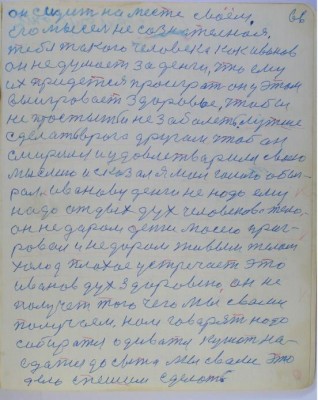 66
он сидит на месте своём.
Его мысел не сознателная.
тебя такого человека как иванов
он не думает за денги, что ему
их придется проиграт он у этом
выигровает здоровье, чтобы
не простыт и не заболет. нужно
сделат врога другом чтоб он
смирился и удовлетварился свою
мыслию и сказал я мол самого
иванову денги не надо ему
надо отдых дух человеков тело
он не даром дети масло приг-
ровал и недаром живым телом
холод плохое устречает это
иванов дух здоровено, он не
получет того чего мы своими
получаем. нам говарят надо
собиратся одиватся кушат на-
едатся до сыта мы своим это
дело спешим сделать